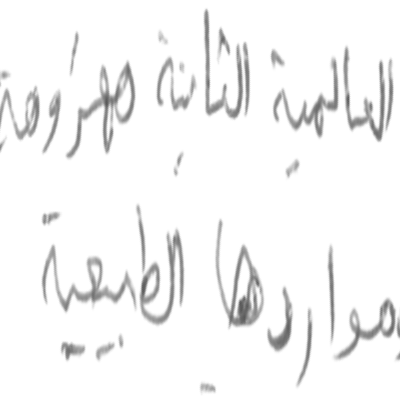 العالمية الثانية مهزومة
ومواردها الطبيعية